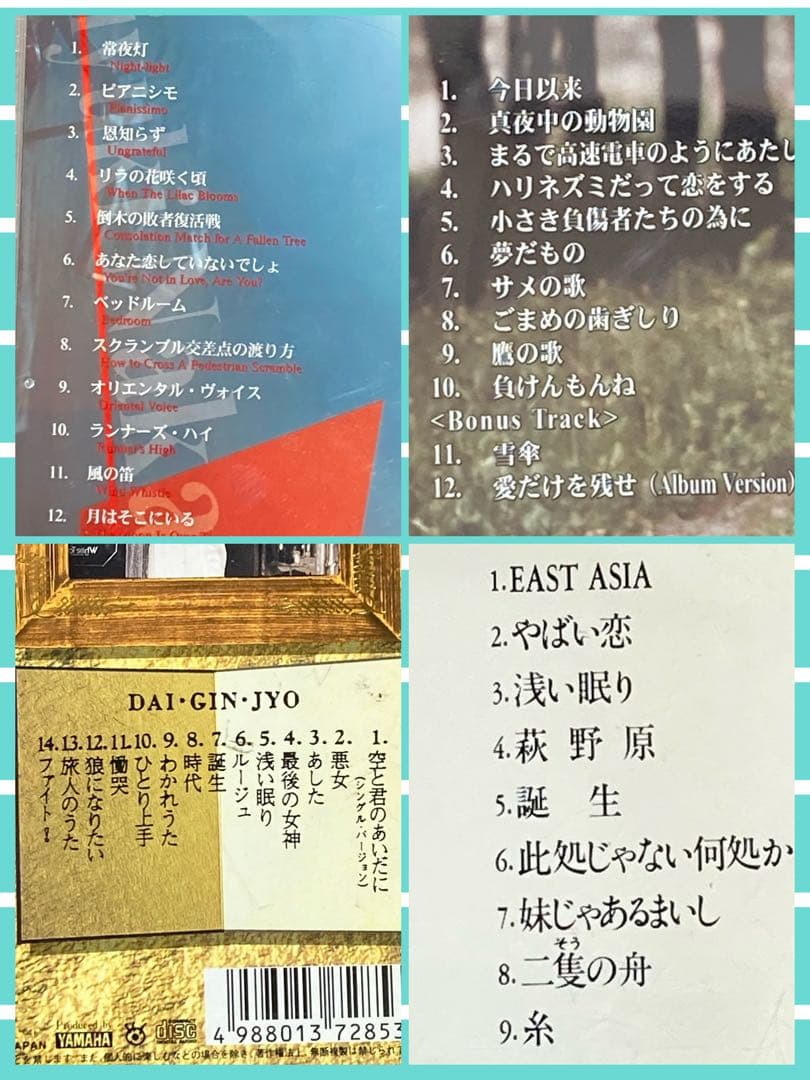 1. 常夜灯
Night-light
2. ピアニシモ
Pianissimo
3. 恩知らず
Ungrateful
4. リラの花咲く頃
When The Lilac Blooms
5. 倒木の敗者復活戦
Consolation Match for A Fallen Tree
6. あなた恋していないでしょ
You're Not in Love, Are You?
7. ベッドルーム
Bedroom
8. スクランブル交差点の渡り方
How to Cross A Pedestrian Scramble
9. オリエンタル・ヴォイス
Oriental Voice
10. ランナーズ・ハイ
Runner's High
11. 風の笛
Wind Whistle
12. 月はそこにいる
1. 今日以来
2. 真夜中の動物園
3. まるで高速電車のようにあたし
4. ハリネズミだって恋をする
5. 小さき負傷者たちの為に
6. 夢だもの
7. サメの歌
8. ごまめの歯ぎしり
9. 鷹の歌
10. 負けんもんね
<Bonus Track>
11. 雪傘
12. 愛だけを残せ (Album Version)
DAI・GIN・JYO
1. 空と君のあいだに
(シングル・バージョン)
2. 悪女
3. あした
4. 最後の女神
5. 浅い眠り
6. ルージュ
7. 誕生
8. 時代
9. わかれうた
10. ひとり上手
11. 慟哭
12. 狼になりたい
13. 旅人のうた
14. ファイト!
Produced by
YAMAHA
disc
4 988013 72853
APAN
を禁じます。また、個人的に楽しむなどの場合を除き、著作権法上、無断複製は禁じられ
1.EAST ASIA
2.やばい恋
3.浅い眠り
4.萩野原
5.誕 生
6.此処じゃない何処か
7.妹じゃあるまいし
そう
8.二隻の舟
9.糸